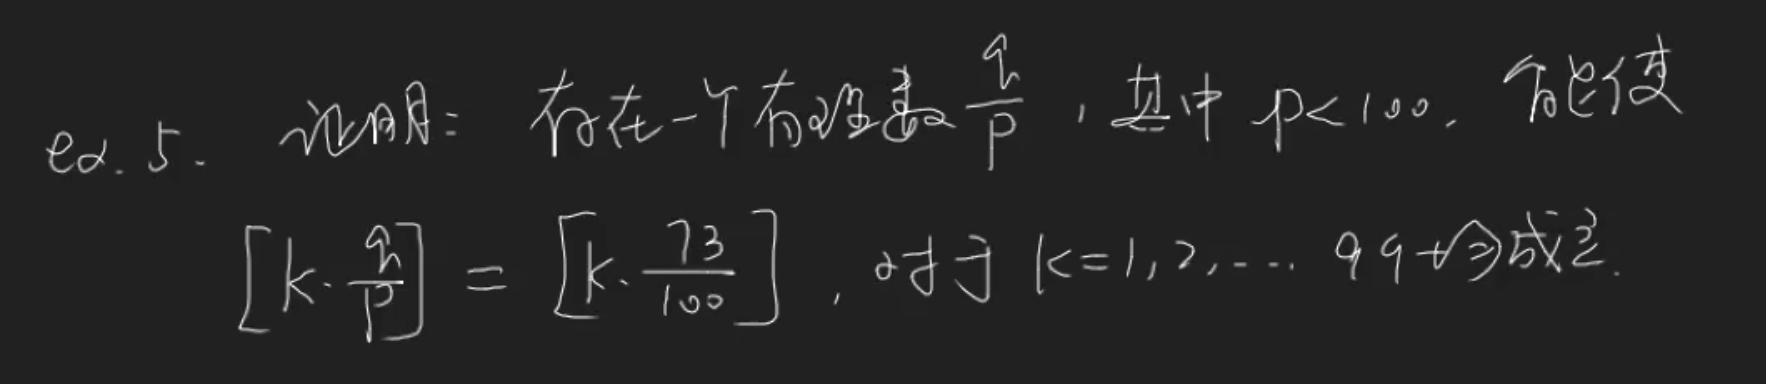 ex.5. 证明: 存在一个有理数 q/p , 其中 p<100. 能使
[k·q/p] = [k·73/100] , 对于 k=1,2,... 99 均成立.